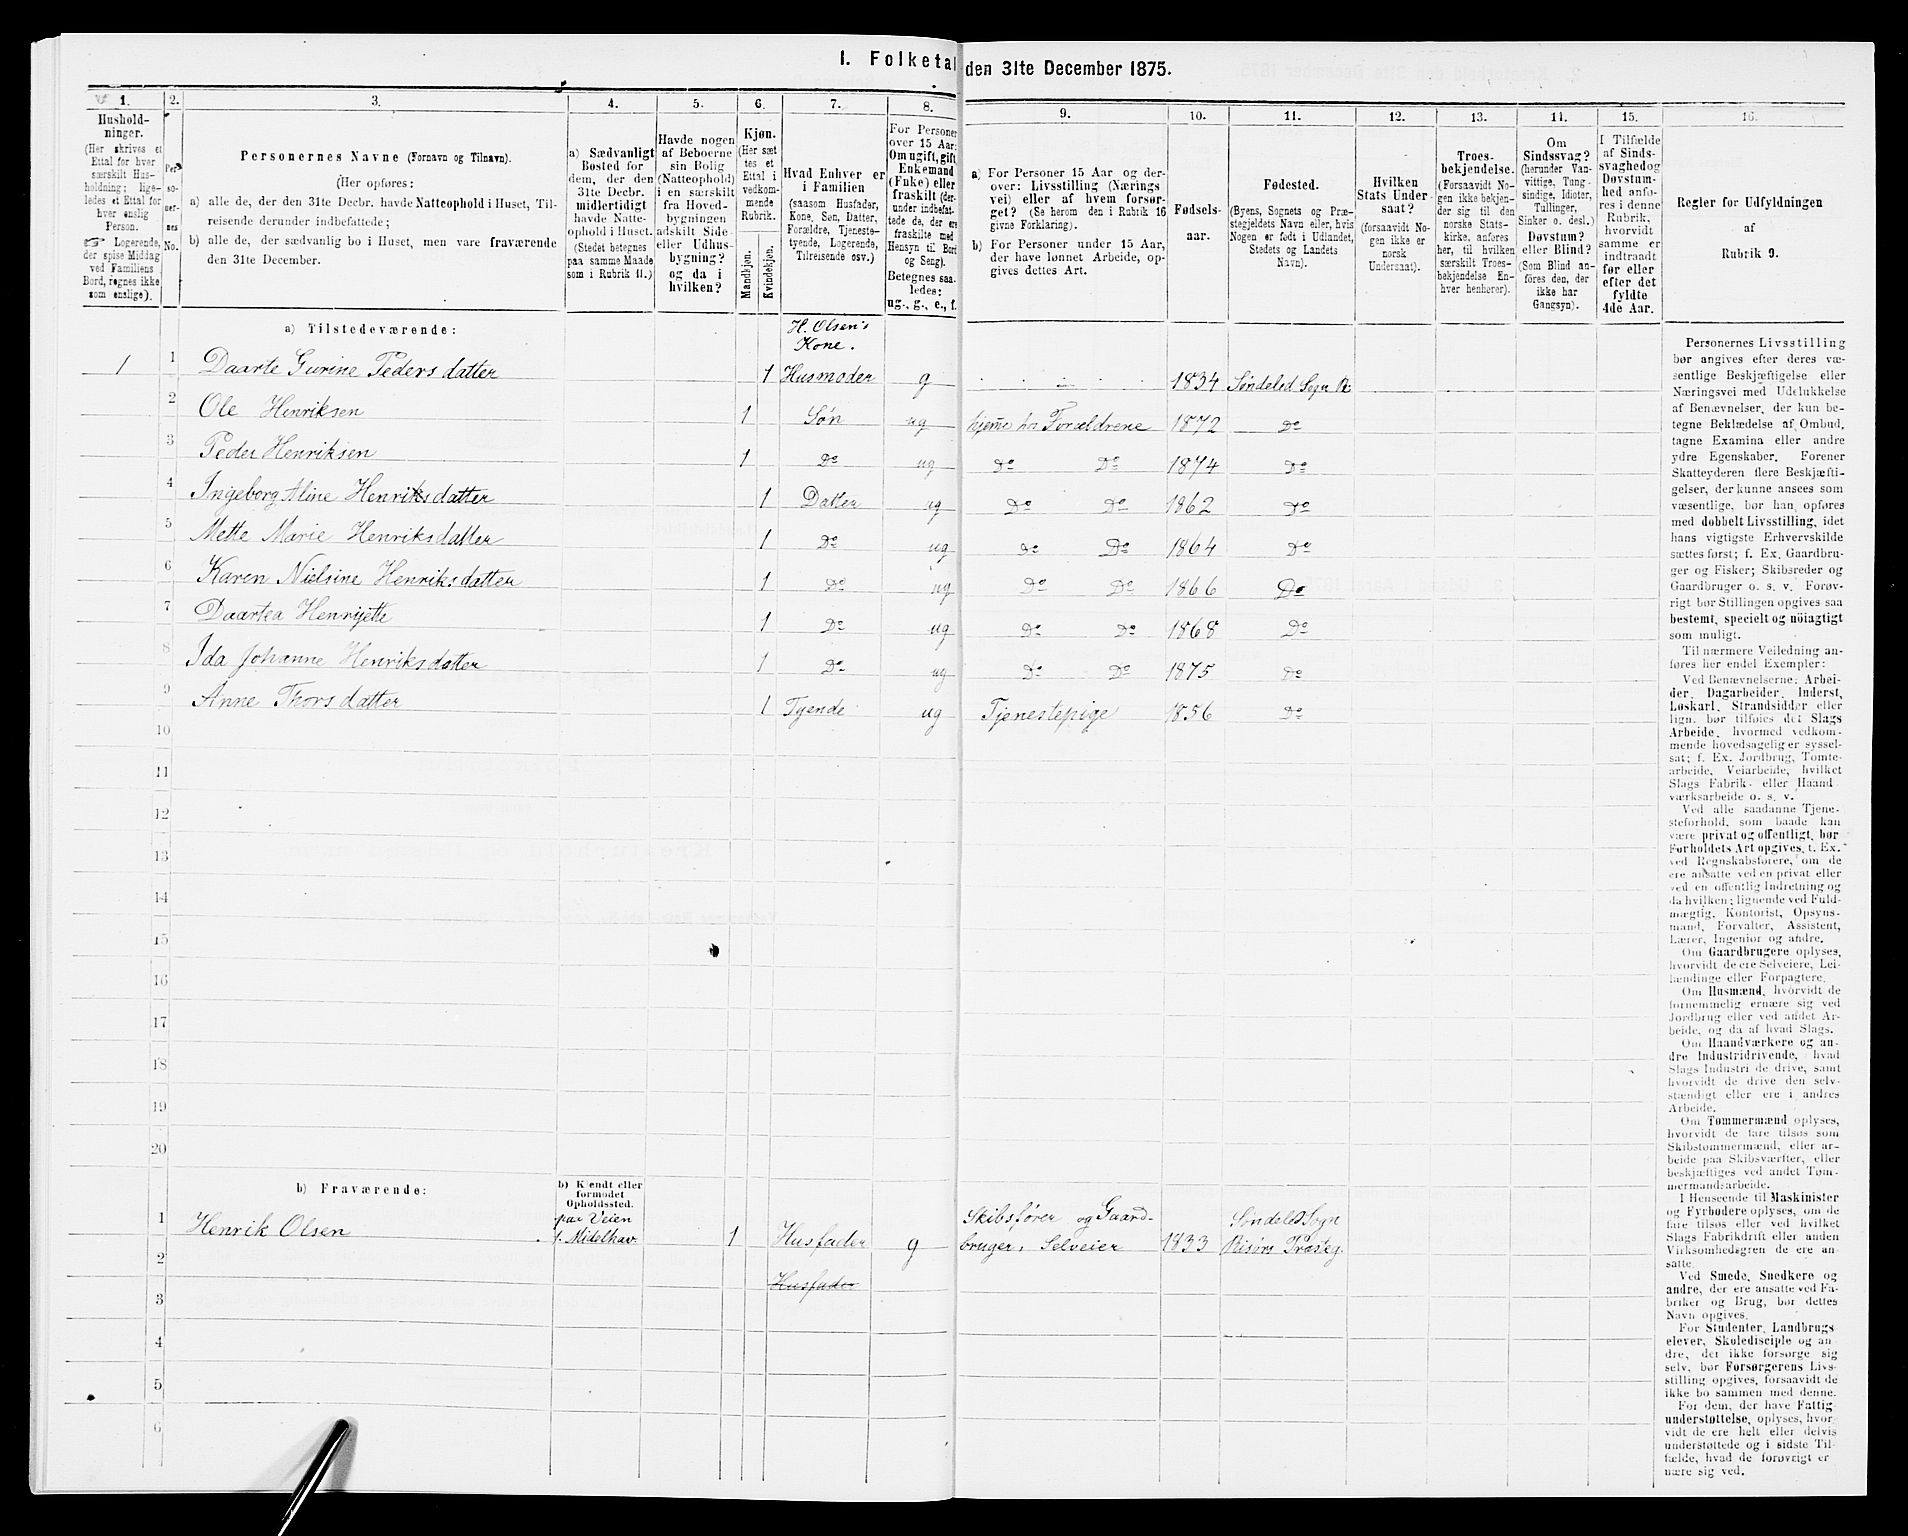 I. Folketal den 31te December 1875.
1. 2. 3. 4. 5. 6. 7. 8. 9. 10. 11. 12. 13. 14. 15. 16.
Hushold-
ninger.
(Her skrives et
Ettal for hver
særskilt Hus-
holdning; lige-
ledes et Ettal for
hver enslig
Person.
☞ Logerende,
der spise Middag
ved Familiens
Bord, regnes ikke
som enslige).
Per-
so-
ner-
nes
No.
Personernes Navne (Fornavn og Tilnavn).
(Her opføres:
a) alle de, der den 31te Decbr. havde Natteophold i Huset, Til-
reisende derunder indbefattede;
b) alle de, der sædvanlig bo i Huset, men vare fraværende
den 31te December.
a) Sædvanligt
Bosted for
dem, der den
31te Decbr.
midlertidigt
havde Natte-
ophold i Huset.
(Stedet betegnes
paa samme Maade
som i Rubrik 11.)
Havde nogen
af Beboerne
sin Bolig
(Natteophold)
i en særskilt
fra Hoved-
bygningen
adskilt Side-
eller Udhus-
bygning?
og da i
hvilken?
Kjøn.
(Her sæt-
tes et
Ettal i
vedkom-
mende
Rubrik.
Mandkjøn.
Kvindekjøn.
Hvad Enhver er
i Familien
(saasom Husfader,
Kone, Søn, Datter,
Forældre, Tjeneste-
tyende, Logerende,
Tilreisende osv.)
For Personer
over 15 Aar:
Om ugift, gift,
Enkemand
(Enke) eller
fraskilt (der-
under indbefat-
tede de, der ere
fraskilte med
Hensyn til Bord
og Seng).
Betegnes saa-
ledes:
ug., g., e., f.
a) For Personer 15 Aar og der-
over: Livsstilling (Nærings
vei) eller af hvem forsør-
get? (Se herom den i Rubrik 16
givne Forklaring).
b) For Personer under 15 Aar,
der have lønnet Arbeide, op-
gives dettes Art.
Fødsels-
aar.
Fødested.
(Byens, Sognets og Præ-
stegjeldets Navn eller, hvis
Nogen er født i Udlandet,
Stedets og Landets
Navn).
Hvilken
Stats Under-
saat?
(forsaavidt No-
gen ikke er
norsk
Undersaat).
Troes-
bekjendelse.
(Forsaavidt No-
gen ikke bekjen-
der sig til den
norske Stats-
kirke, anføres
her, til hvilken
særskilt Troes-
bekjendelse En-
hver henhører).
Om
Sindssvag?
(herunder Van-
vittige, Tung-
sindige, Idioter,
Tullinger,
Sinker o. desl.)
Døvstum?
eller Blind?
(Som Blind an-
føres den, der
ikke har
Gangsyn).
I Tilfælde
af Sinds-
svaghed og
Døvstum-
hed anfø-
res i denne
Rubrik,
hvorvidt
samme er
indtraadt
før eller
efter det
fyldte
4de Aar.
Regler for Udfyldningen
af
Rubrik 9.
a) Tilstedeværende:
H. Olsen's
Kone.
1 1 Daarte Gurine Peders datter 1 Husmoder g 1834 Søndeled Sogn R:
2 Ole Henriksen 1 Søn ug hjeme hos Forældrene 1872 Do
3 Peder Henriksen 1 Do ug Do Do 1874 Do
4 Ingeborg Aline Henriksdatter 1 Datter ug Do Do 1862 Do
5 Mette Marie Henriksdatter 1 Do ug Do Do 1864 Do
6 Karen Nielsine Henriksdatter 1 Do ug Do Do 1866 Do
7 Daartea Henrijette 1 Do ug Do Do 1868 Do
8 Ida Johanne Henriksdatter 1 Do ug Do Do 1875 Do
9 Anne Thorsdatter 1 Tyende ug Tjenestepige 1856 Do
10
11
12
13
14
15
16
17
18
19
20
b) Fraværende:
b) Kjendt eller
formodet
Opholdssted.
1 Henrik Olsen paa Veien
t. Midelhav. 1 Husfader g Skibsfører og Gaard-
bruger, Selveier 1833 Søndeled Sogn
Risørs Præsteg.
2 Husfader
3
4
5
6
Personernes Livsstilling
bør angives efter deres væ-
sentlige Beskjæftigelse eller
Næringsvei med Udelukkelse
af Benævnelser, der kun be-
tegne Beklædelse af Ombud,
tagne Examina eller andre
ydre Egenskaber. Forener
Skatteyderen flere Beskjæfti-
gelser, der kunne ansees som
væsentlige, bør han opføres
med dobbelt Livsstilling, idet
hans vigtigste Erhvervskilde
sættes først; f. Ex. Gaardbru-
ger og Fisker; Skibsreder og
Gaardbruger o. s. v. Forøv-
rigt bør Stillingen opgives saa
bestemt, specielt og nöiagtigt
som muligt.
Til nærmere Veiledning an-
føres her endel Exempler:
Ved Benævnelserne: Arbei-
der, Dagarbeider, Inderst,
Løskarl, Strandsidder eller
lign. bør tilføies det Slags
Arbeide, hvormed vedkom-
mende hovedsagelig er syssel-
sat; f. Ex. Jordbrug, Tomte-
arbeide, Veiarbeide, hvilket
Slags Fabrik- eller Haand-
værksarbeide o. s. v.
Ved alle saadanne Tjene-
steforhold, som baade kan
være privat og offentligt, bør
Forholdets Art opgives, t. Ex.
ved Regnskabsførere, om de
ere ansatte ved en privat eller
ved en offentlig Indretning og
da hvilken; lignende ved Fuld-
mægtig, Kontorist, Opsyns-
mand, Forvalter, Assistent,
Lærer, Ingeniør og andre.
Om Gaardbrugere oplyses,
hvorvidt de ere Selveiere, Lei-
lændinge eller Forpagtere.
Om Husmænd, hvorvidt de
fornemmelig ernære sig ved
Jordbrug eller ved andet Ar-
beide, og da af hvad Slags.
Om Haandværkere og an-
dre Industridrivende, hvad
Slags Industri de drive, samt
hvorvidt de drive den selv-
stændigt eller ere i andres
Arbeide.
Om Tømmermænd oplyses,
hvorvidt de fare tilsøs som
Skibstømmermænd, eller ar-
beide paa Skibsværfter, eller
beskjæftiges ved andet Tøm-
mermandsarbeide.
I Henseende til Maskinister
og Fyrbødere oplyses, om de
fare tilsøs eller ved hvilket
Slags Fabrikdrift eller anden
Virksomhedsgren de ere an-
satte.
Ved Smede, Snedkere og
andre, der ere ansatte ved Fa-
briker og Brug, bør dettes
Navn opgives.
For Studenter, Landbrugs-
elever, Skoledisciple og an-
dre, der ikke forsørge sig
selv, bør Forsørgerens Livs-
stilling opgives, forsaavidt de
ikke bo sammen med denne.
For dem, der have Fattig-
understøttelse, oplyses, hvor-
vidt de ere helt eller delvis
understøttede og i sidste Til-
fælde, hvad de forøvrigt er-
nære sig ved.